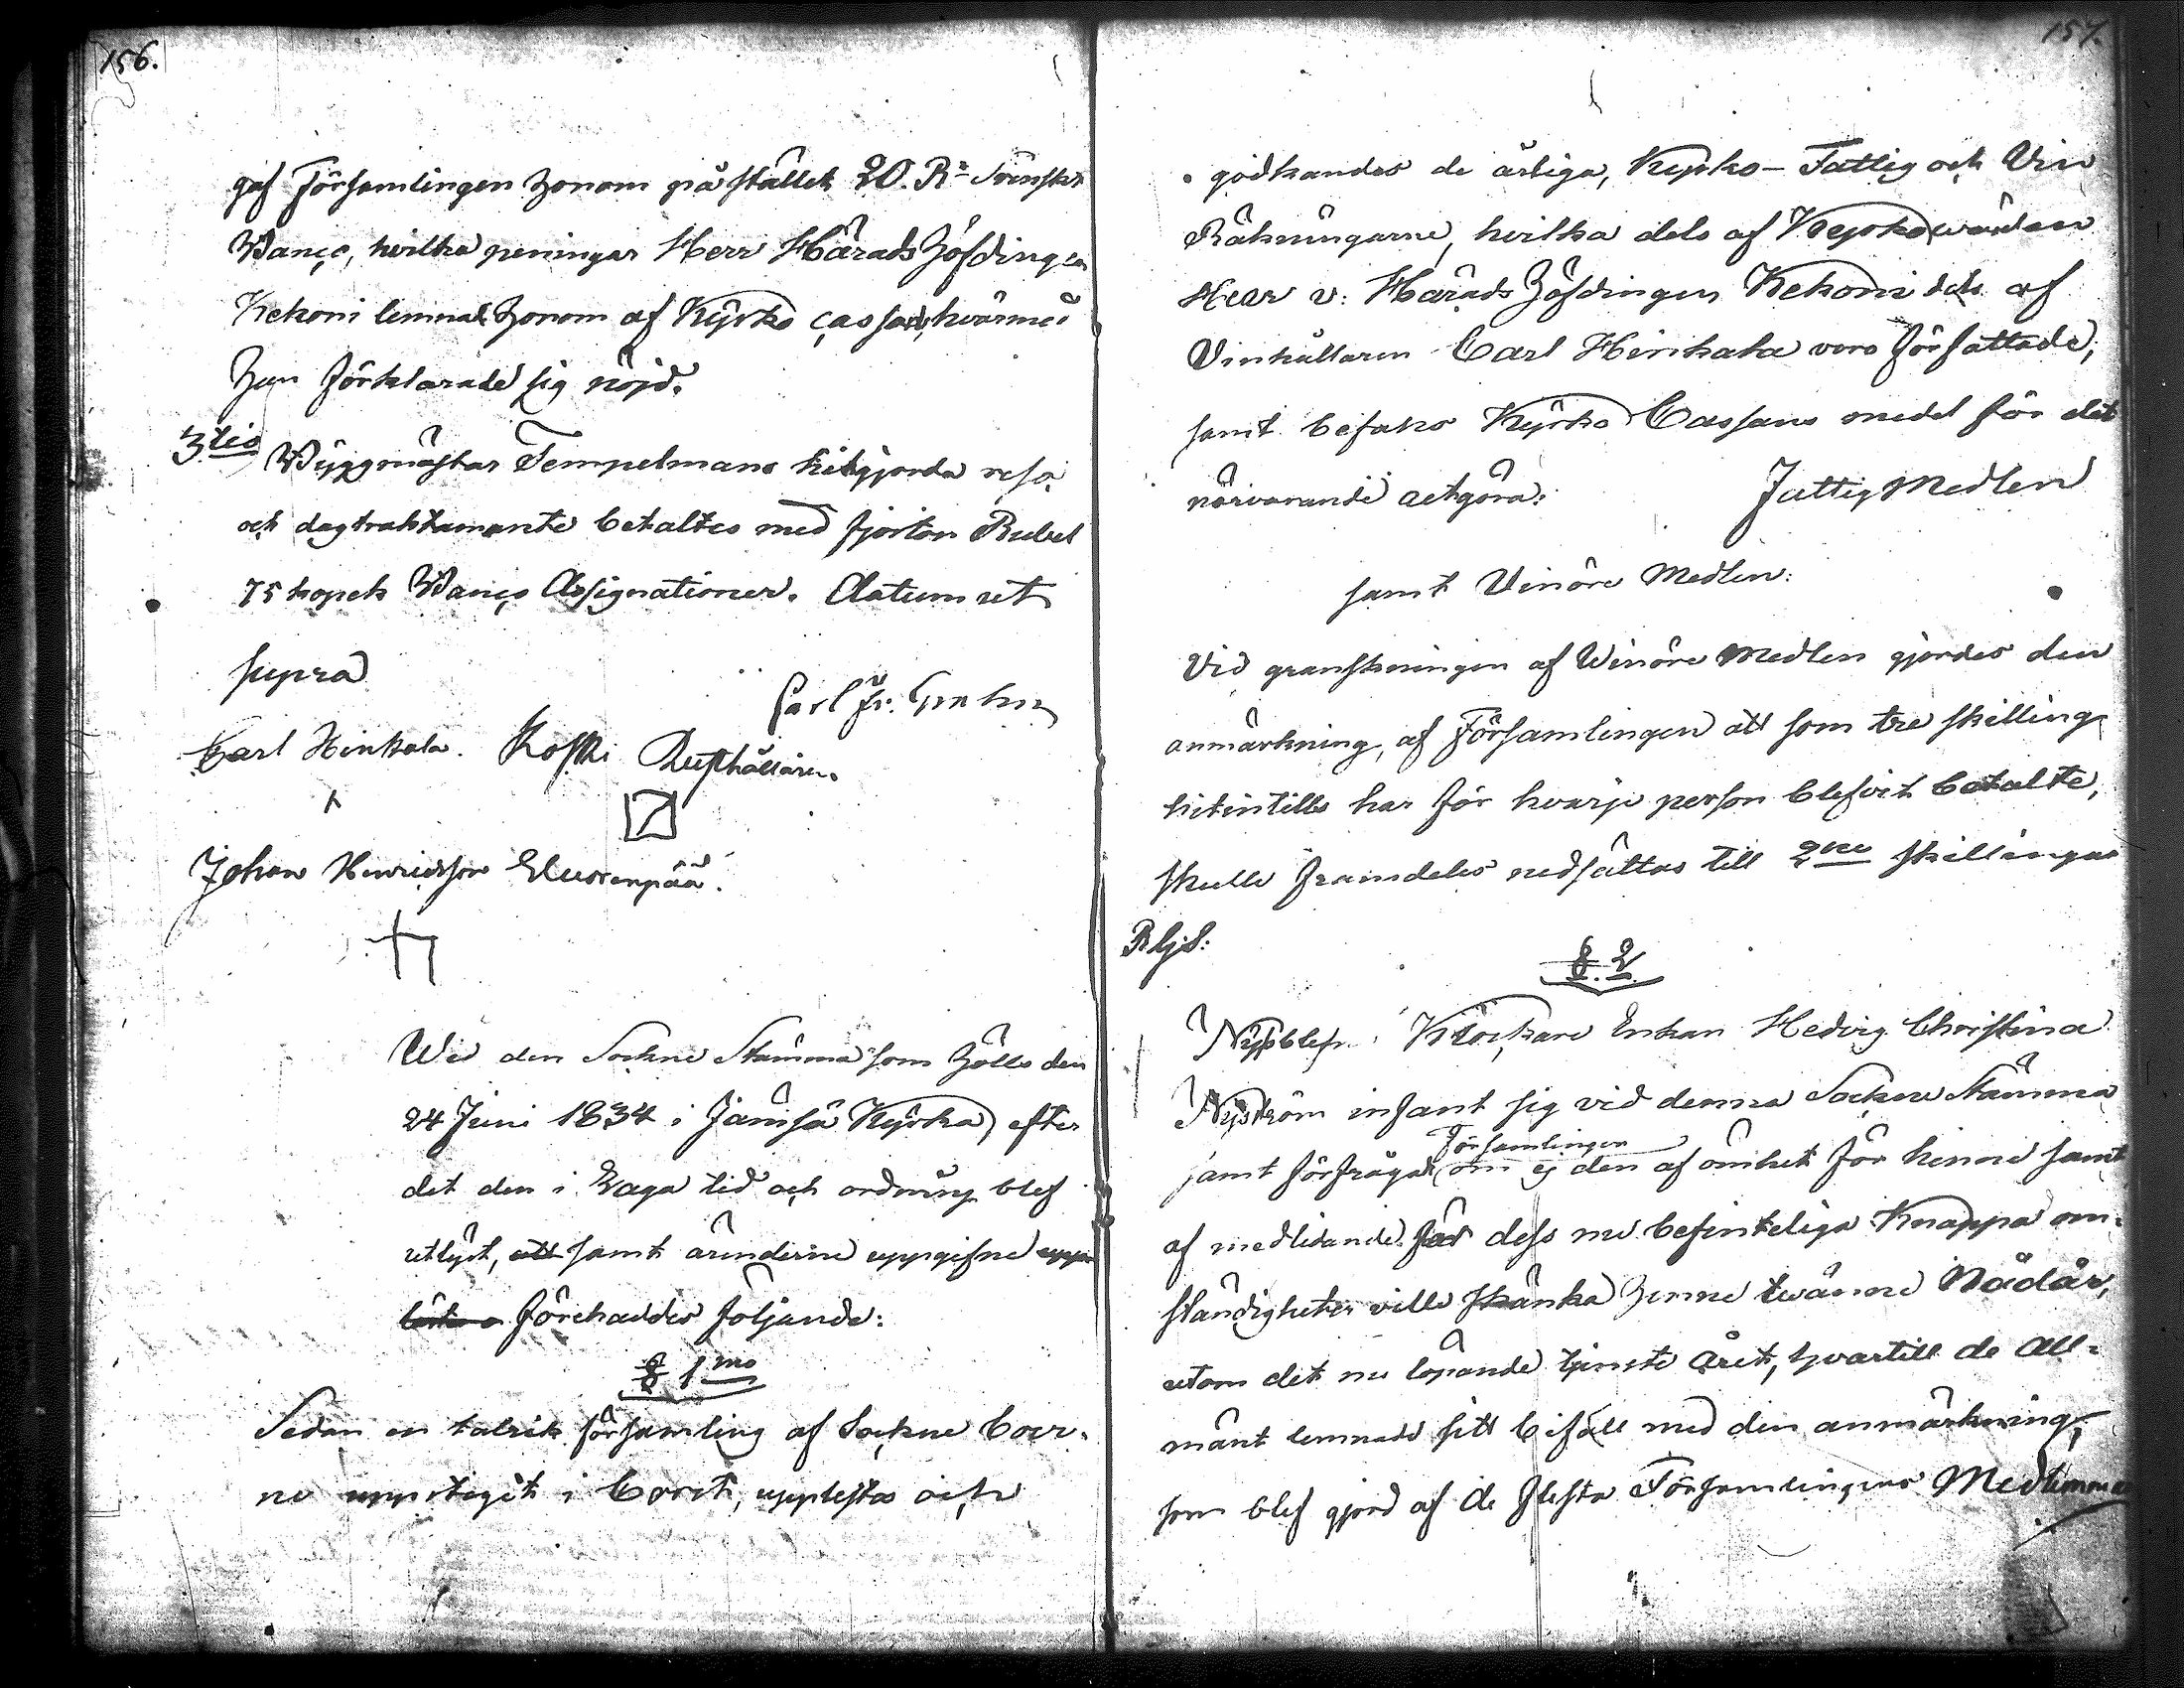 156.
gaf Församlingen honom på stället 20. R:r Svenskt
Banco, hvilka peningar Herr Härads Höfdingen
Kekoni lemnat honom af Kyrko cassan, hvarmed
han förklarade sig nöjd.
3tio Byggmästar Tempelmans hitgjorda resa
och dagtraktamente betaltes med fjorton Rubel
75 kopek Banco Assignationer. Datum ut
supra
Carl Fr. Grahn
Carl Hinkala. Koski Rusthållaren.
Johan Henricsson Eluxenpää.
Wid den Sockne Stämma som hölls den
24 Juni 1834 i Jämsä Kyrka, efter
det den i Laga tid och ordning blef
utlyst, att samt ärenderne uppgifne
förehaddes följande:
§ 1mo
Sedan en talrik församling af Sockne Boer-
ne upptagit i Coret, upplästes och
157.
godkändes de årliga, Kyrko- Fattig och Vin
Räkningarne, hvilka dels af Kyrkowärden
Herr v: Härads Höfdingen Kekoni dels af
Vinkällaren Carl Hinkala voro författade,
samt befans Kyrko Cassans medel för det
närvarande utgöra: Fattig Medlen
samt Vinöre Medlen:
Vid granskningen af Vinöre Medlen gjordes den
anmärkning, af Församlingen att som tre skilling
hitintills har för hvarje person blefvit betalte,
skulle framdeles nedsättas till 2ne skillingar
Rgs:
§ 2
Nyssblefne Klockare Enkan Hedvig Christina
Nyström infant sig vid denna Sockne Stämma
Församlingen
samt förfrågade om ej den af ömhet för henne samt
af medlidande för dess nu befinteliga Knappa om-
ständigheter ville skänka henne twänne Nådår,
utom det nu löpande tjenste året, hvartill de All-
mänt lemnade sitt bifall med den anmärkning,
som blef gjord af de flesta Församlingens Medlemmar